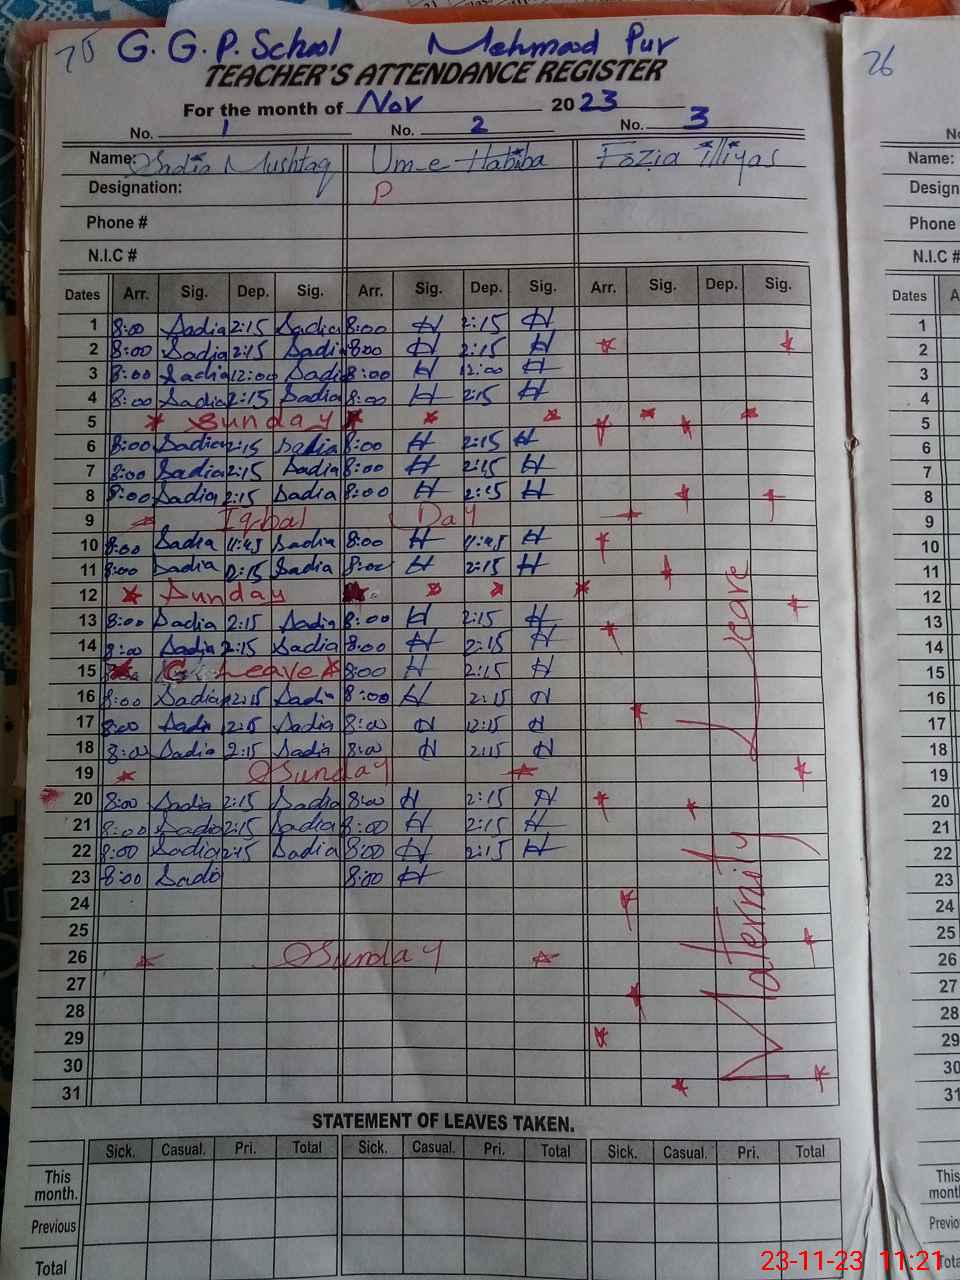 25 G. G. P. School Mehmood Pur
26
TEACHER'S ATTENDANCE REGISTER
For the month of Nov 2023
No. 1 No. 2 No. 3
Name: Sadia Mushtaq Um-e-Habiba Fozia Illiyas
Name:
Designation: P
Phone #
Phone
N.I.C #
N.I.C #
Dates Arr. Sig. Dep. Sig. Arr. Sig. Dep. Sig. Arr. Sig. Dep. Sig.
Dates
1 8:00 Sadia 2:15 Sadia 8:00 H 2:15 H
2 8:00 Sadia 2:15 Sadia 8:00 H 2:15 H
3 8:00 Sadia 12:00 Sadia 8:00 H 12:00 H
4 8:00 Sadia 2:15 Sadia 8:00 H 2:15 H
5 Sunday
6 8:00 Sadia 2:15 Sadia 8:00 H 2:15 H
7 8:00 Sadia 2:15 Sadia 8:00 H 2:15 H
8 8:00 Sadia 2:15 Sadia 8:00 H 2:15 H
9 Iqbal Day
10 8:00 Sadia 11:45 Sadia 8:00 H 11:45 H
11 8:00 Sadia 2:15 Sadia 8:00 H 2:15 H
12 Sunday
13 8:00 Sadia 2:15 Sadia 8:00 H 2:15 H
14 8:00 Sadia 2:15 Sadia 8:00 H 2:15 H
15 Leave 8:00 H 2:15 H
16 8:00 Sadia 2:15 Sadia 8:00 H 2:15 H
17 8:00 Sadia 2:15 Sadia 8:00 H 12:15 H
18 8:00 Sadia 2:15 Sadia 8:00 H 2:15 H
19 Sunday
20 8:00 Sadia 2:15 Sadia 8:00 H 2:15 H
21 8:00 Sadia 2:15 Sadia 8:00 H 2:15 H
22 8:00 Sadia 2:15 Sadia 8:00 H 2:15 H
23 8:00 Sadia 8:00 H
24
25
26 Sunday
27
28
29
30
31
Maternity Leave
STATEMENT OF LEAVES TAKEN.
Sick. Casual. Pri. Total Sick. Casual. Pri. Total Sick. Casual. Pri. Total
This
month.
Previous
Total
1
2
3
4
5
6
7
8
9
10
11
12
13
14
15
16
17
18
19
20
21
22
23
24
25
26
27
28
29
30
31
This
23-11-23 11:21